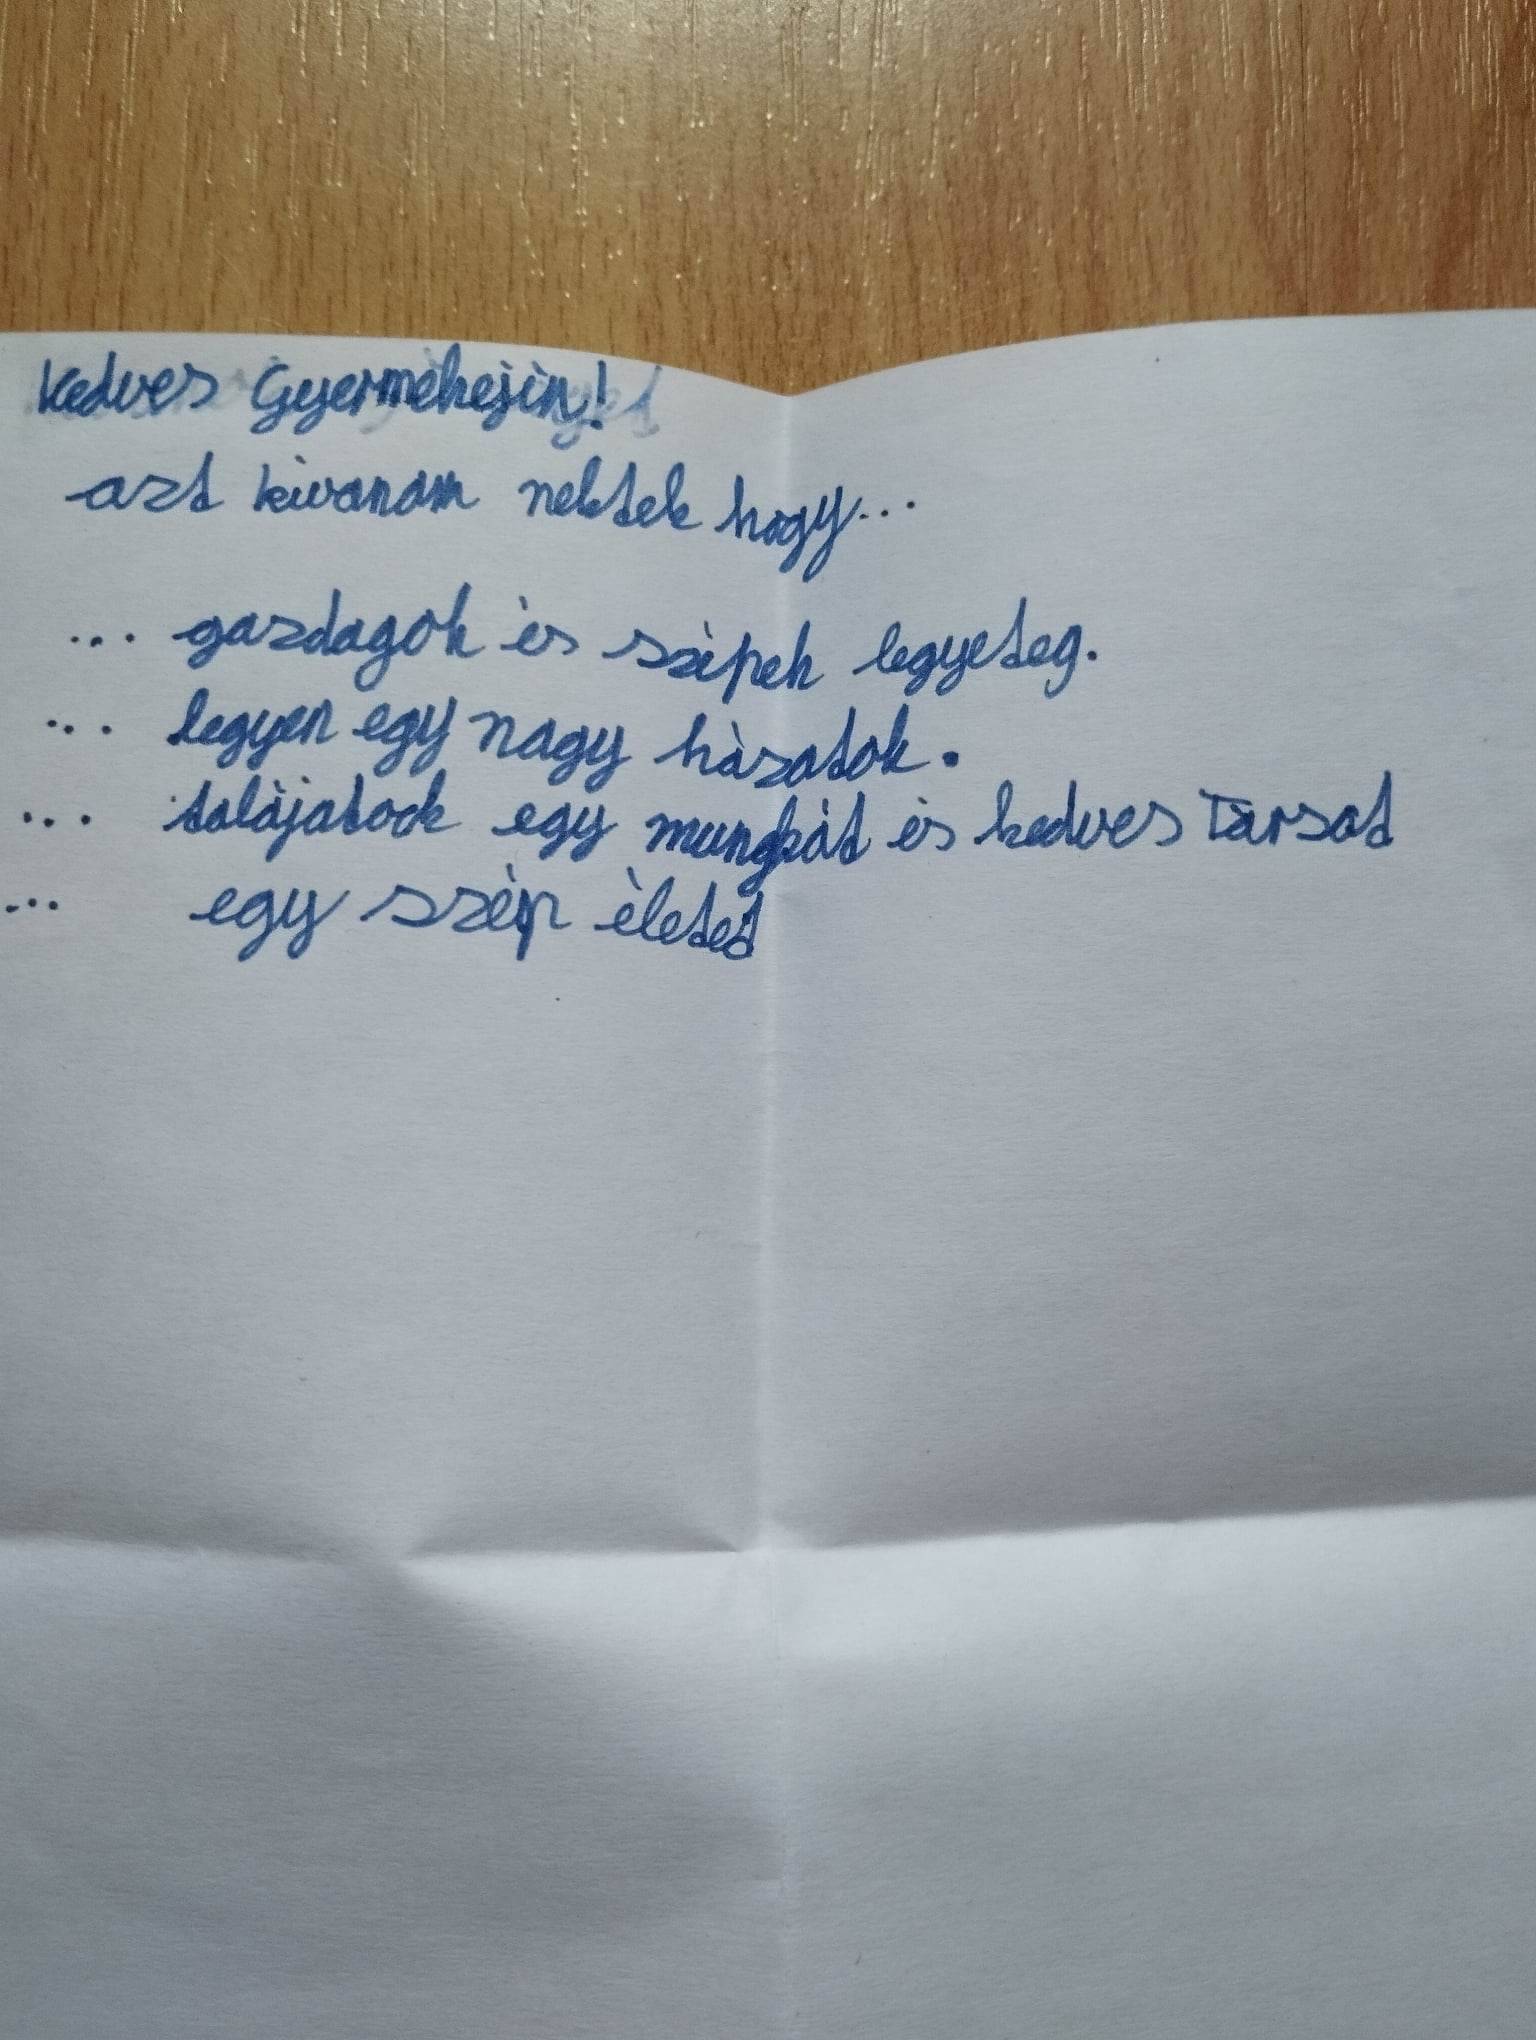 Kedves Gyermekejin!
azt kivanam nektek hogy...
... gazdagok és szépek legyeteg.
... legyen egy nagy házatok.
... talájatook egy mungkát és kedves Társat
... egy szép életet